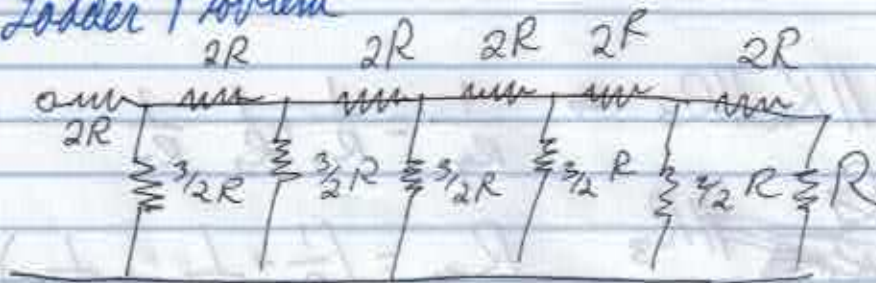 Ladder Problem
2R 2R 2R 2R 2R
2R
3/2R 3/2R 3/2R 3/2 R R